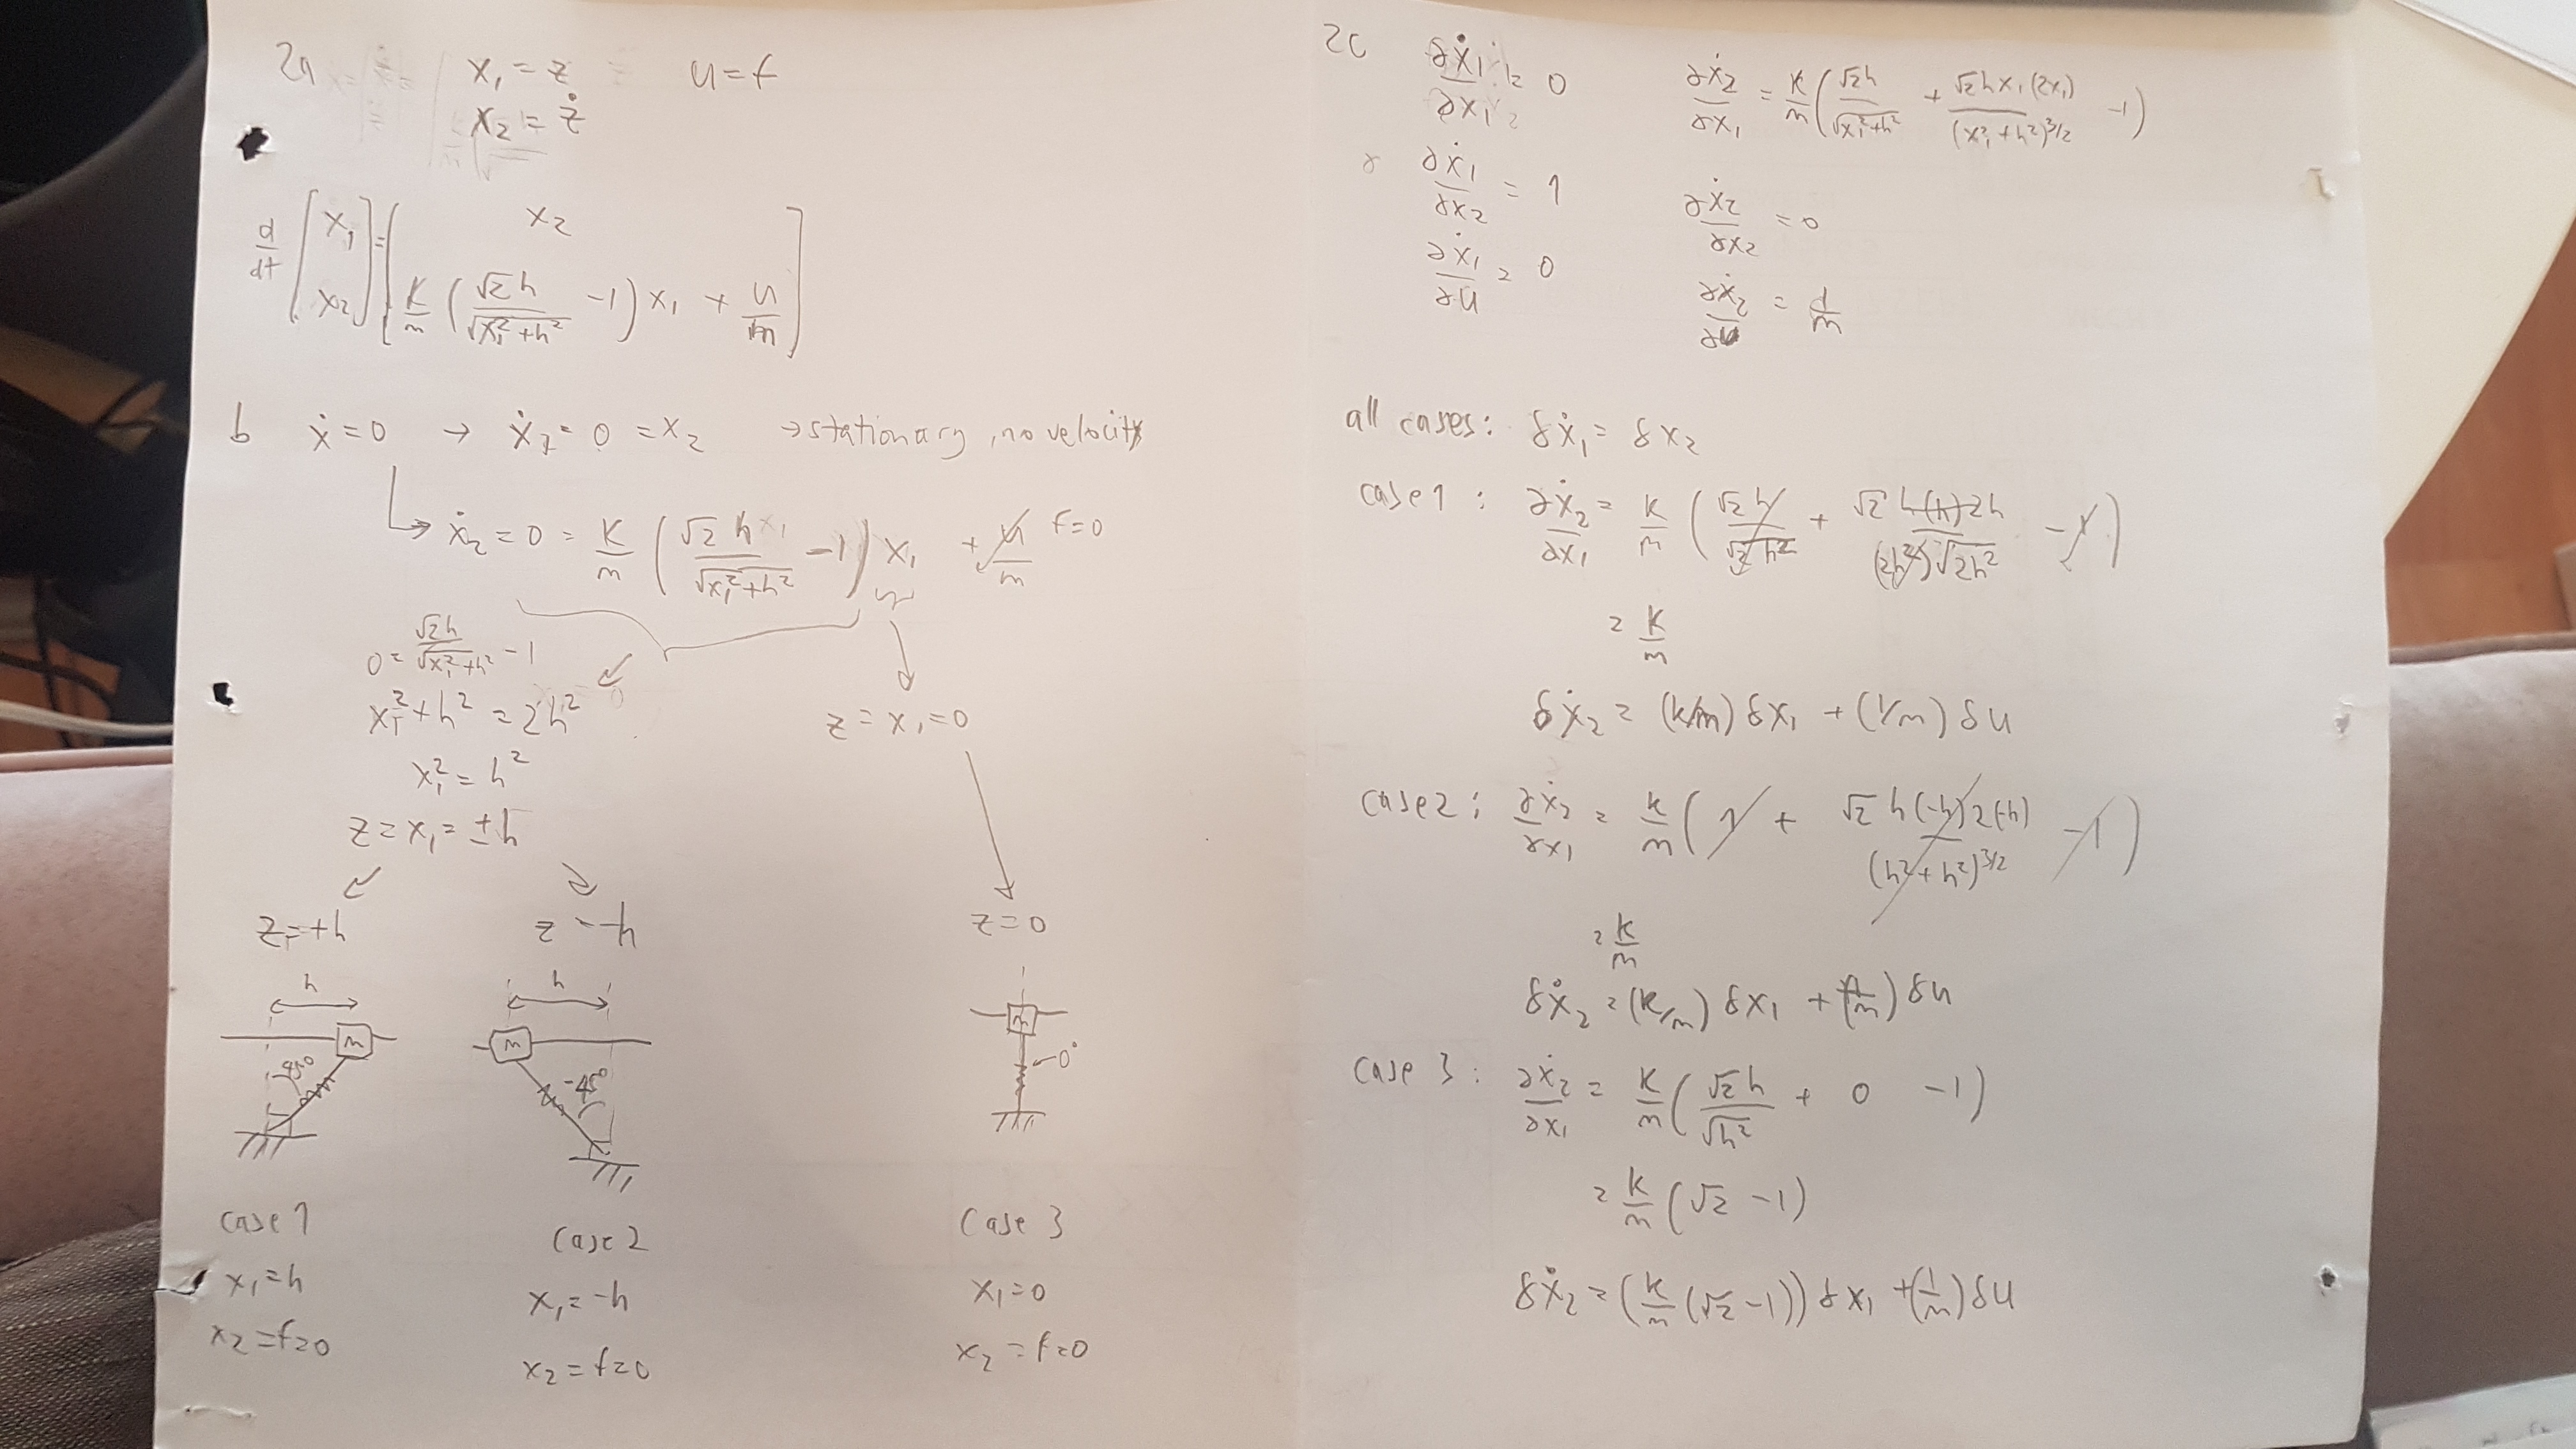 2a x₁ = z u = f
x₂ = ż
d/dt [x₁ x₂] = [x₂
k/m (√2 h/√(x₁²+h²) -1) x₁ + u/m]
b ẋ = 0 → ẋ₁ = 0 = x₂ → stationary, no velocity
↳ ẋ₂ = 0 = k/m (√2 h/√(x₁²+h²) -1) x₁ + u/m f=0
0 = √2h/√(x₁²+h²) -1
x₁² + h² = 2h²
z = x₁ = 0
x₁² = h²
z = x₁ = ±h
z = +h z = -h z = 0
h h
m m m
45° -45° 0°
case 1 case 2 case 3
x₁ = h x₁ = -h x₁ = 0
x₂ = f = 0 x₂ = f = 0 x₂ = f = 0
2c ∂ẋ₁/∂x₁ = 0 ∂ẋ₂/∂x₁ = k/m (√2h/√(x₁²+h²) + √2hx₁(2x₁)/(x₁²+h²)^3/2 -1)
∂ẋ₁/∂x₂ = 1 ∂ẋ₂/∂x₂ = 0
∂ẋ₁/∂u = 0 ∂ẋ₂/∂u = 1/m
all cases: δẋ₁ = δx₂
case 1: ∂ẋ₂/∂x₁ = k/m (√2 h/√2h² + √2 h(h)2h/(2h²)√2h² - 1)
= k/m
δẋ₂ = (k/m) δx₁ + (1/m) δu
case 2: ∂ẋ₂/∂x₁ = k/m (1 + √2 h(-h)2(-h)/(h²+h²)^3/2 -1)
= k/m
δẋ₂ = (k/m) δx₁ + (1/m) δu
case 3: ∂ẋ₂/∂x₁ = k/m (√2 h/√h² + 0 -1)
= k/m (√2 -1)
δẋ₂ = (k/m (√2 -1)) δx₁ + (1/m) δu